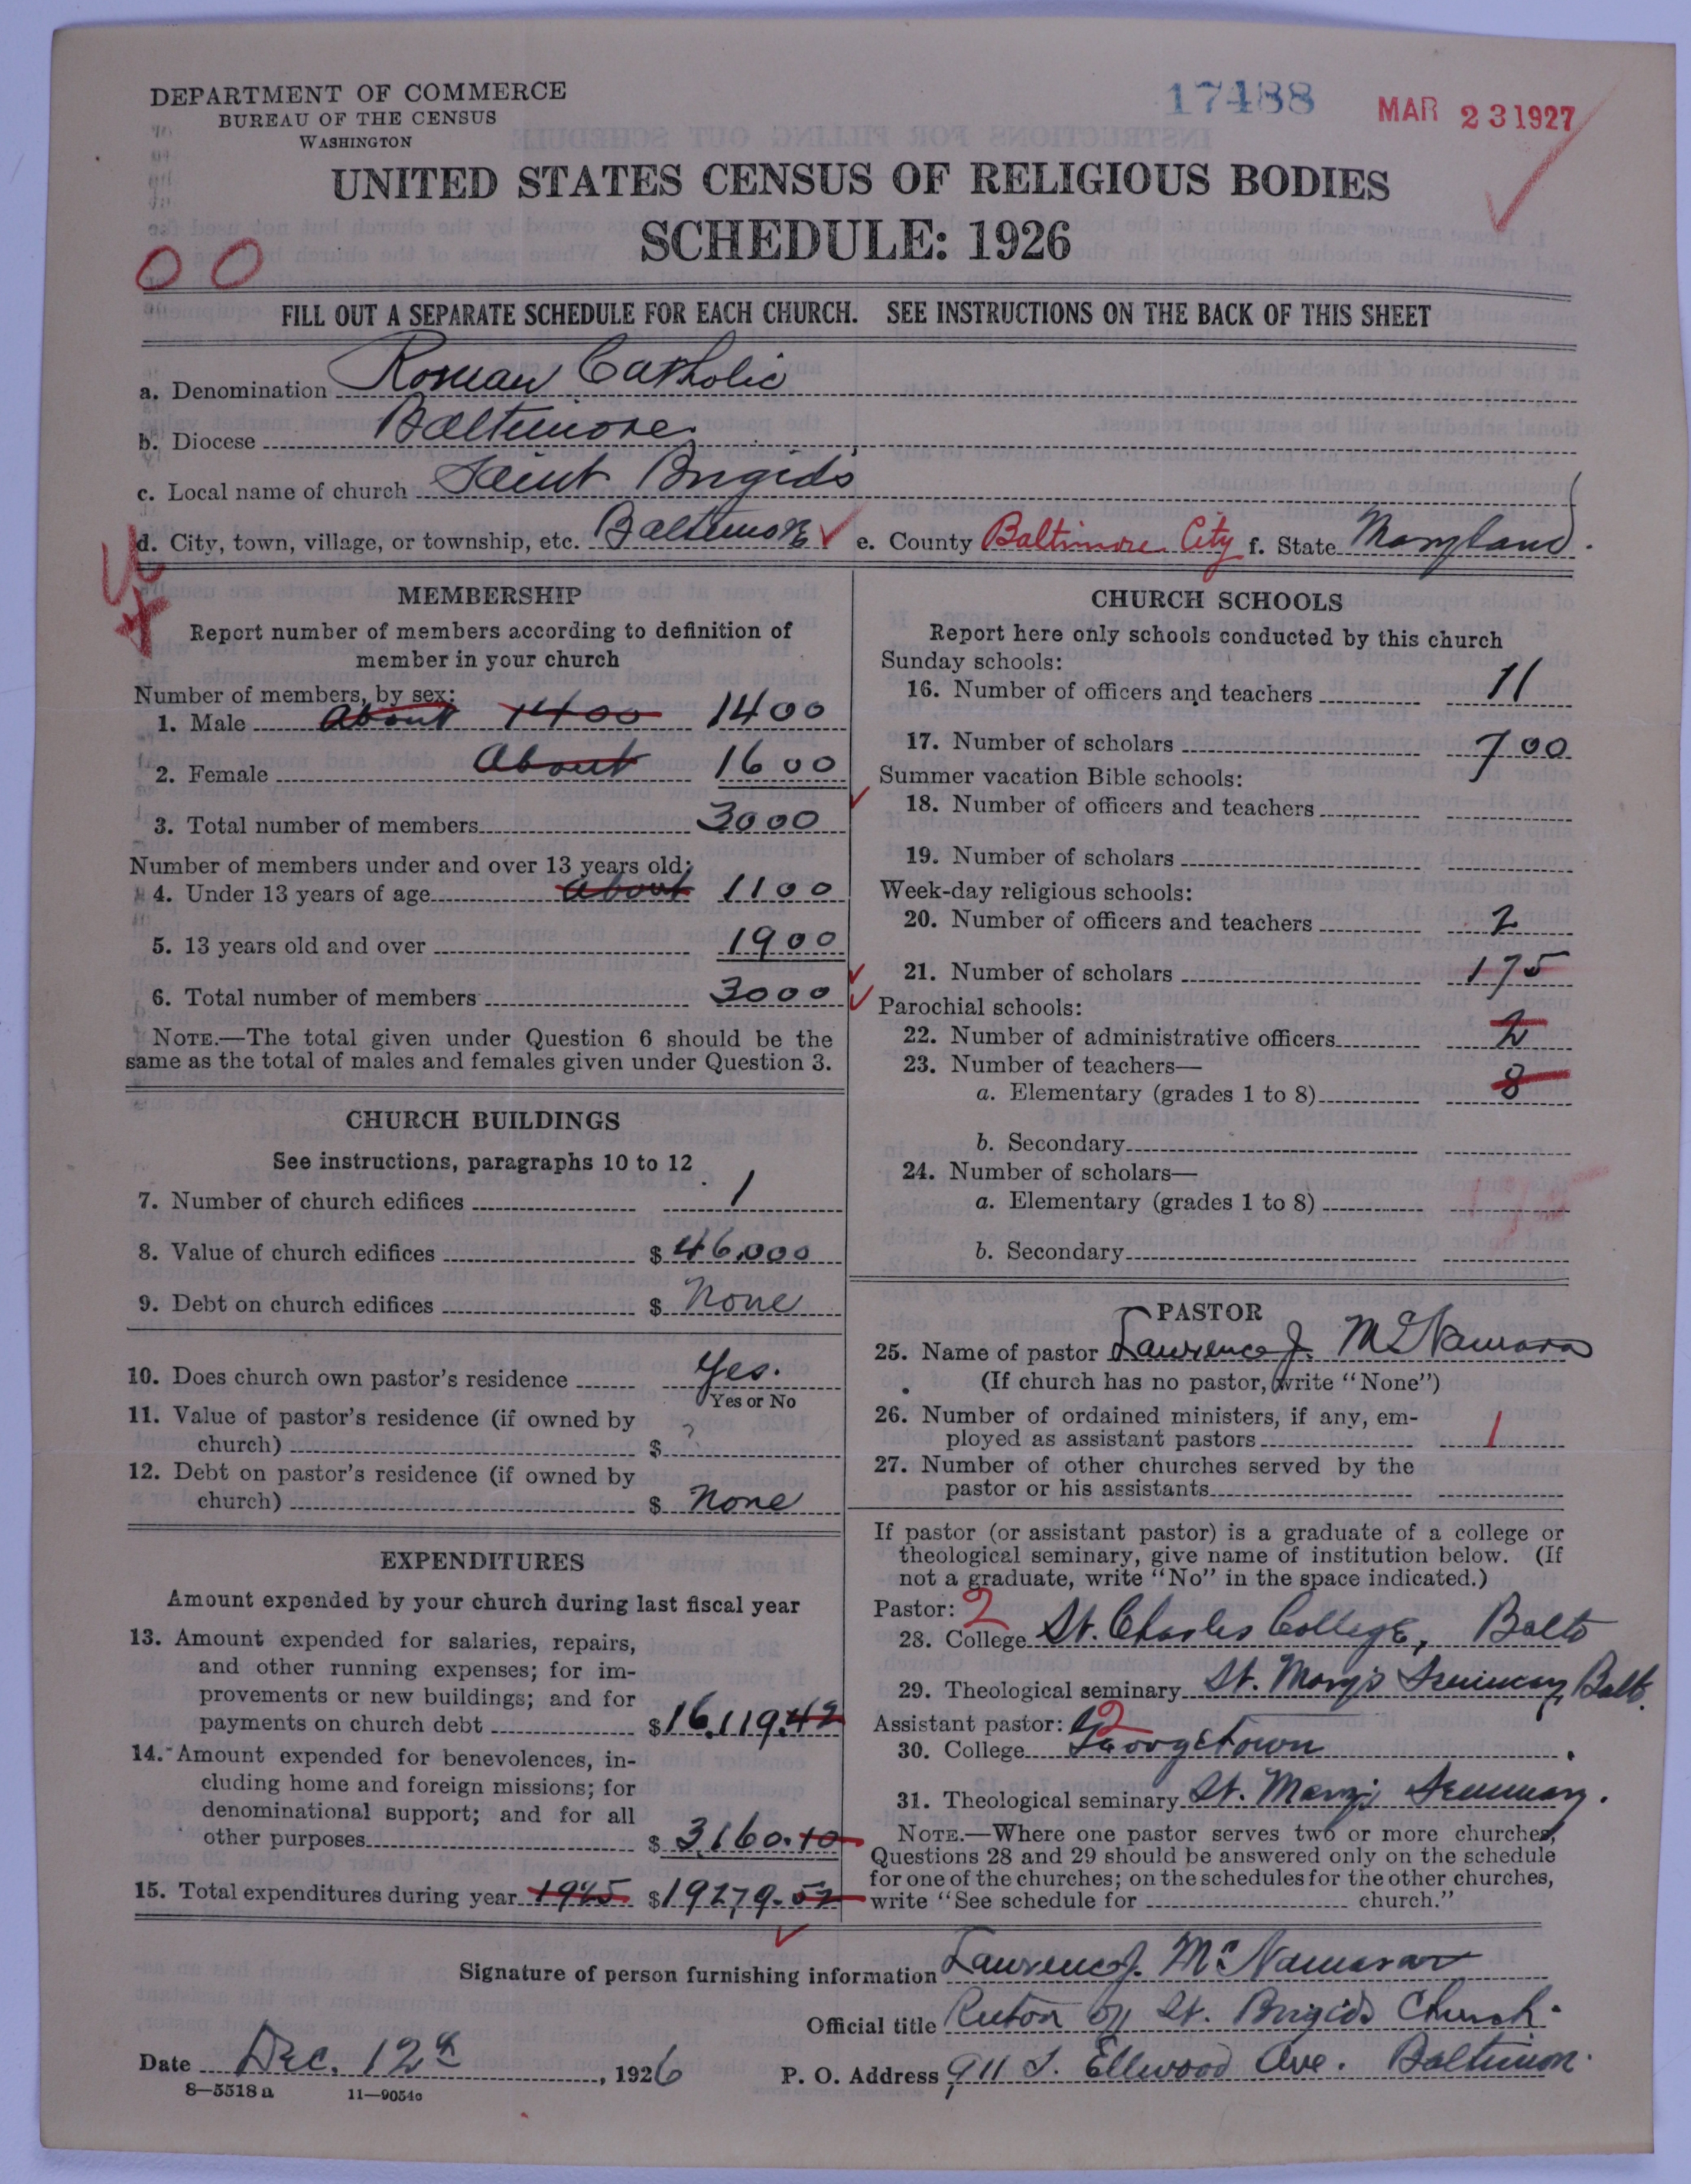 DEPARTMENT OF COMMERCE
BUREAU OF THE CENSUS
WASHINGTON
17488
MAR 23 1927
UNITED STATES CENSUS OF RELIGIOUS BODIES
SCHEDULE: 1926
00
FILL OUT A SEPARATE SCHEDULE FOR EACH CHURCH. SEE INSTRUCTIONS ON THE BACK OF THIS SHEET
a. Denomination Roman Catholic
b. Diocese Baltimore
c. Local name of church Saint Brigids
d. City, town, village, or township, etc. Baltimore e. County Baltimore City f. State Maryland.
MEMBERSHIP
Report number of members according to definition of
member in your church
Number of members, by sex:
1. Male About 1400 1400
2. Female About 1600
3. Total number of members 3000
Number of members under and over 13 years old:
4. Under 13 years of age About 1100
5. 13 years old and over 1900
6. Total number of members 3000
NOTE.—The total given under Question 6 should be the
same as the total of males and females given under Question 3.
CHURCH BUILDINGS
See instructions, paragraphs 10 to 12
7. Number of church edifices 1
8. Value of church edifices $ 46,000
9. Debt on church edifices $ None
10. Does church own pastor's residence Yes.
Yes or No
11. Value of pastor's residence (if owned by
church) $ ?
12. Debt on pastor's residence (if owned by
church) $ None
EXPENDITURES
Amount expended by your church during last fiscal year
13. Amount expended for salaries, repairs,
and other running expenses; for im-
provements or new buildings; and for
payments on church debt $16,119.42
14. Amount expended for benevolences, in-
cluding home and foreign missions; for
denominational support; and for all
other purposes $ 3,160.10
15. Total expenditures during year 1925 $19279.52
CHURCH SCHOOLS
Report here only schools conducted by this church
Sunday schools:
16. Number of officers and teachers 11
17. Number of scholars 700
Summer vacation Bible schools:
18. Number of officers and teachers
19. Number of scholars
Week-day religious schools:
20. Number of officers and teachers 2
21. Number of scholars 175
Parochial schools:
22. Number of administrative officers 2
23. Number of teachers—
a. Elementary (grades 1 to 8) 8
b. Secondary
24. Number of scholars—
a. Elementary (grades 1 to 8)
b. Secondary
PASTOR
25. Name of pastor Lawrence J. McNamara
(If church has no pastor, write "None")
26. Number of ordained ministers, if any, em-
ployed as assistant pastors 1
27. Number of other churches served by the
pastor or his assistants
If pastor (or assistant pastor) is a graduate of a college or
theological seminary, give name of institution below. (If
not a graduate, write "No" in the space indicated.)
Pastor: 2
28. College St. Charles College, Balto
29. Theological seminary St. Mary's Seminary, Balto.
Assistant pastor: 2
30. College Georgetown
31. Theological seminary St. Mary's Seminary.
NOTE.—Where one pastor serves two or more churches,
Questions 28 and 29 should be answered only on the schedule
for one of the churches; on the schedules for the other churches,
write "See schedule for church."
Signature of person furnishing information Lawrence J. McNamara
Official title Rector of St. Brigids Church.
Date Dec. 12th, 1926 P. O. Address 911 S. Ellwood Ave. Baltimore.
8—5518 a 11—9054c